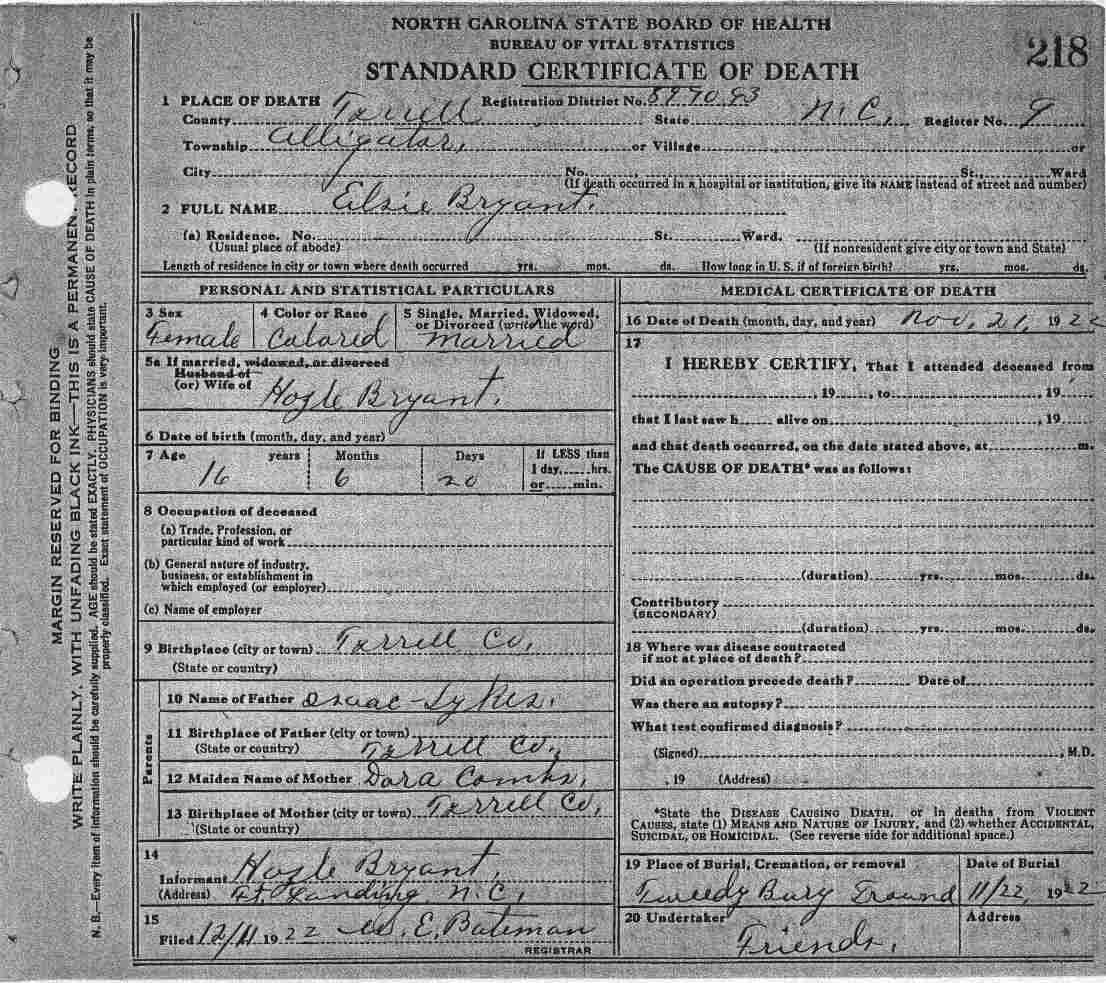 NORTH CAROLINA STATE BOARD OF HEALTH
BUREAU OF VITAL STATISTICS
STANDARD CERTIFICATE OF DEATH
218
1 PLACE OF DEATH Registration District No.
County Tyrrell State N.C. Register No. 9
Township Alligator, or Village or
City No. St., Ward
(If death occurred in a hospital or institution, give its NAME instead of street and number)
2 FULL NAME Elsie Bryant.
(a) Residence. No. St. Ward.
(Usual place of abode) (If nonresident give city or town and State)
Length of residence in city or town where death occurred yrs. mos. ds. How long in U. S. if of foreign birth? yrs. mos. ds.
PERSONAL AND STATISTICAL PARTICULARS
3 Sex 4 Color or Race 5 Single, Married, Widowed,
or Divorced (write the word)
Female Colored Married
5a If married, widowed, or divorced
Husband of
(or) Wife of Hogle Bryant.
6 Date of birth (month, day, and year)
7 Age years Months Days If LESS than
1 day, hrs.
or min.
16 6 20
8 Occupation of deceased
(a) Trade, Profession, or
particular kind of work
(b) General nature of industry,
business, or establishment in
which employed (or employer)
(c) Name of employer
9 Birthplace (city or town) Tyrrell Co,
(State or country)
Parents
10 Name of Father Isaac Sykes.
11 Birthplace of Father (city or town)
(State or country) Tyrrell Co.,
12 Maiden Name of Mother Dora Combs,
13 Birthplace of Mother (city or town) Tyrrell Co,
(State or country)
14
Informant Hogle Bryant,
(Address) Ft. Landing, N.C,
15
Filed 12/11 1922 E. Bateman
REGISTRAR
MEDICAL CERTIFICATE OF DEATH
16 Date of Death (month, day, and year) Nov. 21, 1922
17
I HEREBY CERTIFY, That I attended deceased from
, 19 , to , 19
that I last saw h alive on , 19
and that death occurred, on the date stated above, at m.
The CAUSE OF DEATH* was as follows:
(duration) yrs. mos. ds.
Contributory
(SECONDARY)
(duration) yrs. mos. ds.
18 Where was disease contracted
if not at place of death?
Did an operation precede death? Date of
Was there an autopsy?
What test confirmed diagnosis?
(Signed) , M.D.
, 19 (Address)
*State the DISEASE CAUSING DEATH, or in deaths from VIOLENT
CAUSES, state (1) MEANS AND NATURE OF INJURY, and (2) whether ACCIDENTAL,
SUICIDAL, OR HOMICIDAL. (See reverse side for additional space.)
19 Place of Burial, Cremation, or removal Date of Burial
Tweedy Bury Ground 11/22, 1922
20 Undertaker Address
Friends.
MARGIN RESERVED FOR BINDING
WRITE PLAINLY, WITH UNFADING BLACK INK—THIS IS A PERMANENT RECORD
N. B.—Every item of information should be carefully supplied. AGE should be stated EXACTLY. PHYSICIANS should state CAUSE OF DEATH in plain terms, so that it may be
properly classified. Exact statement of OCCUPATION is very important.